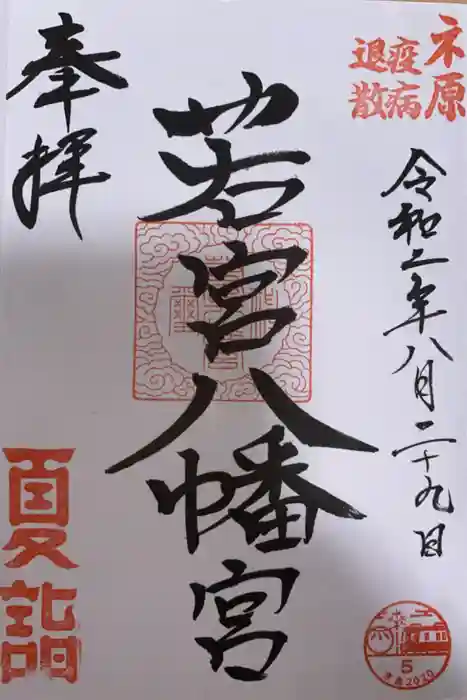 ネ原
疫病
退散
令和二年八月二十九日
若宮八幡宮
奉拝
夏詣
5
2020